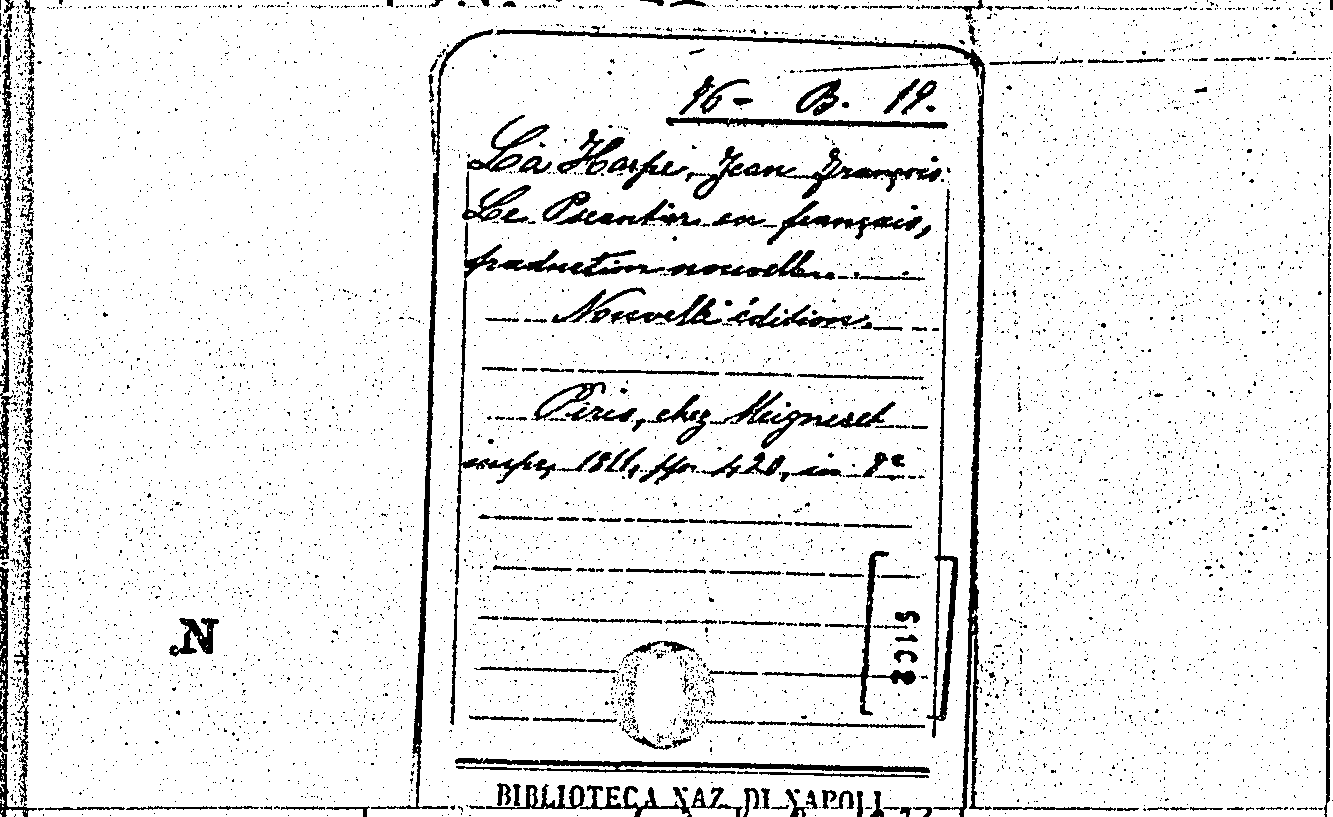 96 - B. 19.
La Harpe, Jean François.
Le Pseautier en français,
traduction nouvelle...
Nouvelle édition.
Paris, chez Meignest
impr, 1811, pp. 420, in 8º
N.
BIBLIOTECA NAZ. DI NAPOLI